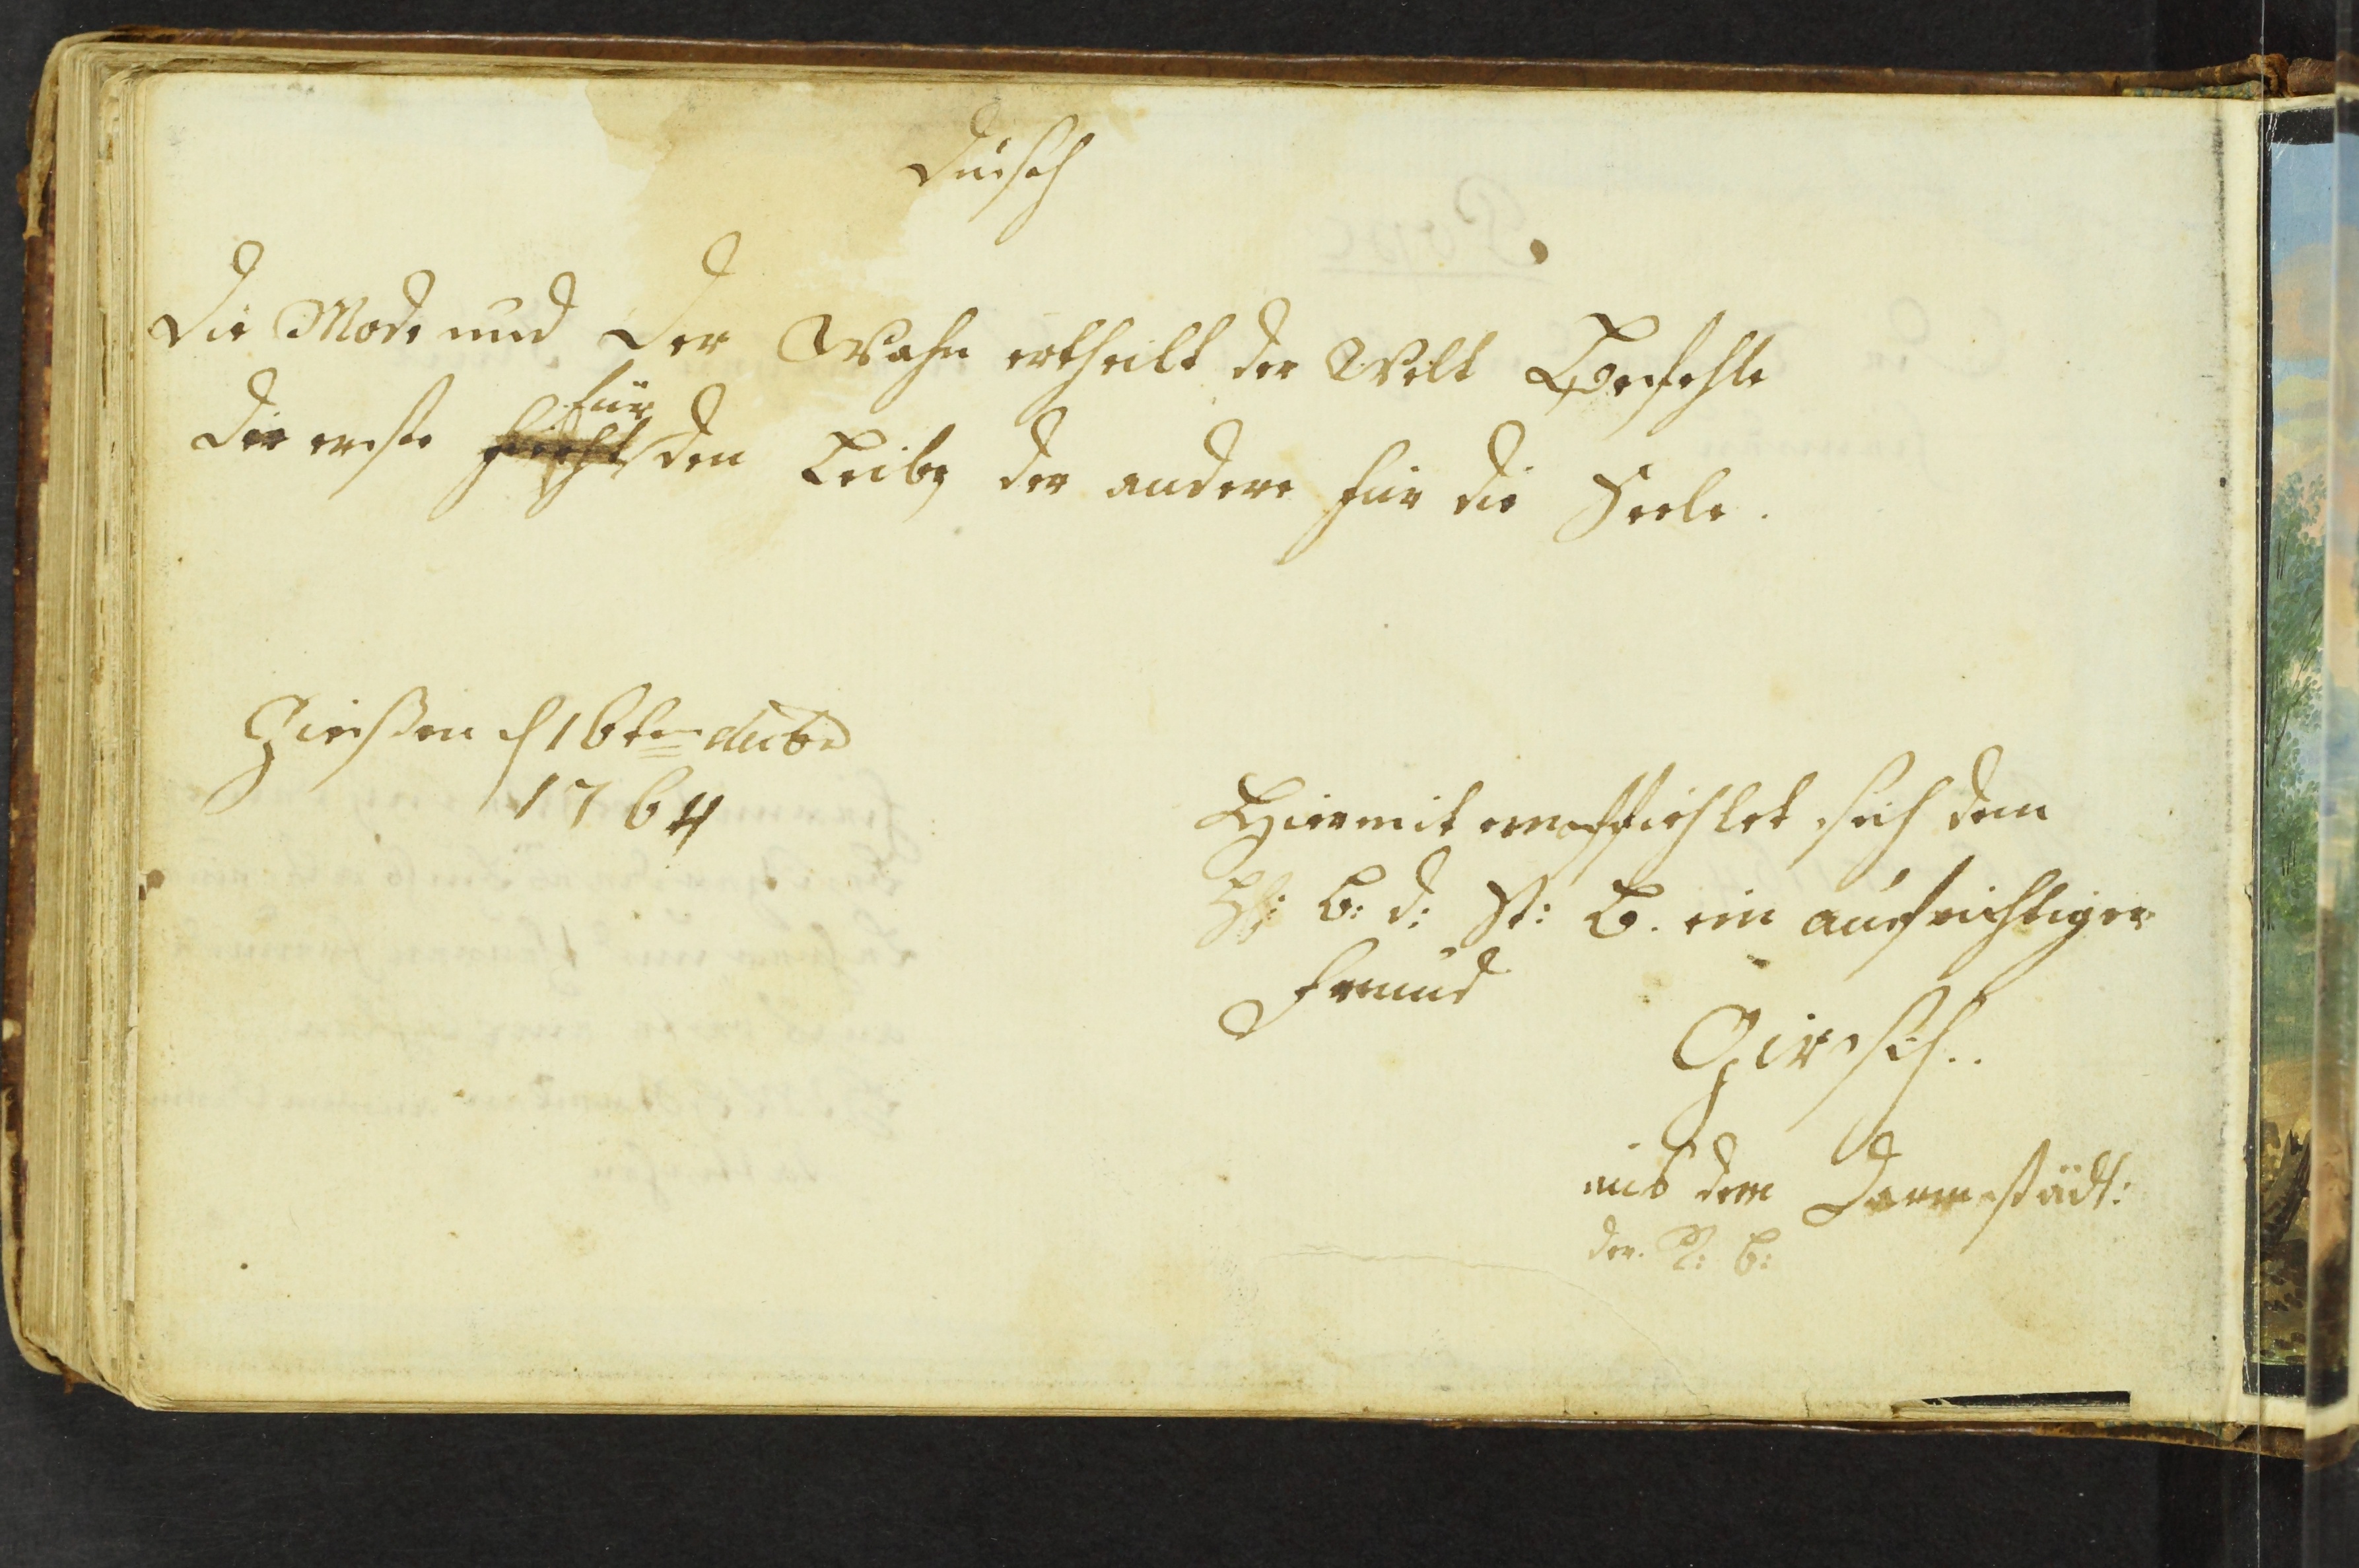 Dusch
Die Mode und Der Wahn ertheilt der Welt Befehle
Die erste für den Leib, der andere für die Seele.
Giessen d 16ten
1764
Hiermit empfiehlet sich dem
H: B: d: St: B. ein aufrichtiger
Freund
Girsch..
aus dem Darmstädt:
der. R: B: